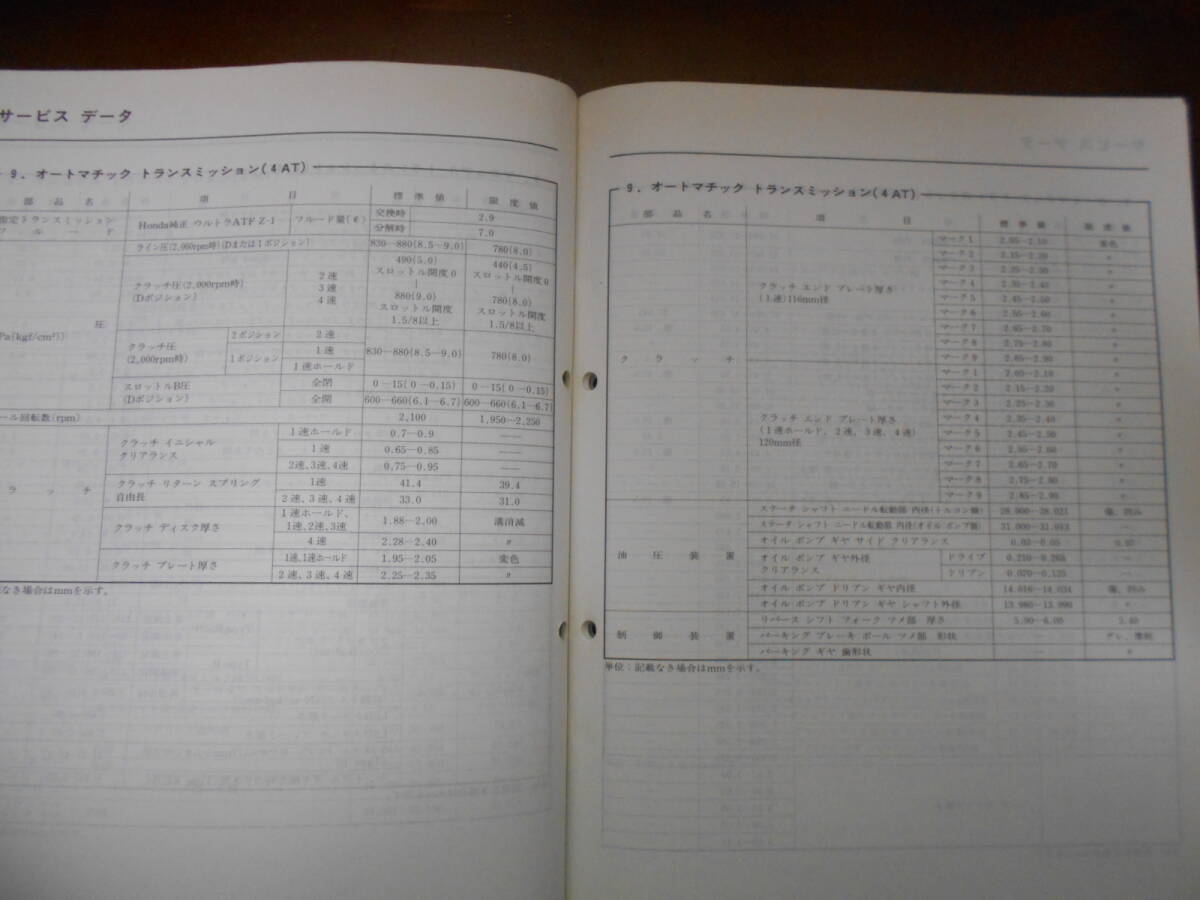 サービス データ
9. オートマチック トランスミッション(4AT)
部品名 項目 標準値 限度値
指定トランスミッションフルード Honda純正 ウルトラATF Z-1 フルード量(ℓ) 交換時 2.9
分解時 7.0
圧 Pa(kgf/cm²)
ライン圧(2,000rpm時)(Dまたは1ポジション) 830—880(8.5—9.0) 780(8.0)
クラッチ圧(2,000rpm時)
(Dポジション)
2速
3速
4速
490(5.0)
スロットル開度0
|
880(9.0)
スロットル開度
1.5/8以上
440(4.5)
スロットル開度0
|
780(8.0)
スロットル開度
1.5/8以上
クラッチ圧
(2,000rpm時)
2ポジション 2速
1ポジション 1速
1速ホールド
830—880(8.5—9.0) 780(8.0)
スロットルB圧
(Dポジション)
全閉 0—15(0—0.15) 0—15(0—0.15)
全開 600—660(6.1—6.7) 600—660(6.1—6.7)
ール回転数(rpm) 2,100 1,950—2,250
ラッチ
クラッチ イニシャル
クリアランス
1速ホールド 0.7—0.9 ——
1速 0.65—0.85 ——
2速、3速、4速 0.75—0.95 ——
クラッチ リターン スプリング
自由長
1速 41.4 39.4
2速、3速、4速 33.0 31.0
クラッチ ディスク厚さ
1速ホールド、
1速、2速、3速 1.88—2.00 溝消滅
4速 2.28—2.40 〃
クラッチ プレート厚さ
1速、1速ホールド 1.95—2.05 変色
2速、3速、4速 2.25—2.35 〃
なき場合はmmを示す。
9. オートマチック トランスミッション(4AT)
部品名 項目 標準値 限度値
クラッチ
クラッチ エンド プレート厚さ
(1速)116mm径
マーク1 2.05—2.10 変色
マーク2 2.15—2.20 〃
マーク3 2.25—2.30 〃
マーク4 2.35—2.40 〃
マーク5 2.45—2.50 〃
マーク6 2.55—2.60 〃
マーク7 2.65—2.70 〃
マーク8 2.75—2.80 〃
マーク9 2.85—2.90 〃
クラッチ エンド プレート厚さ
(1速ホールド、2速、3速、4速)
120mm径
マーク1 2.05—2.10 〃
マーク2 2.15—2.20 〃
マーク3 2.25—2.30 〃
マーク4 2.35—2.40 〃
マーク5 2.45—2.50 〃
マーク6 2.55—2.60 〃
マーク7 2.65—2.70 〃
マーク8 2.75—2.80 〃
マーク9 2.85—2.90 〃
油圧装置
ステータ シャフト ニードル転動部 内径(トルコン側) 29.000—29.021 傷、凹み
ステータ シャフト ニードル転動部 内径(オイル ポンプ側) 31.000—31.013
オイル ポンプ ギヤ サイド クリアランス 0.03—0.05
オイル ポンプ ギヤ外径
クリアランス
ドライブ 0.210—0.265
ドリブン 0.070—0.125
オイル ポンプ ドリブン ギヤ内径 14.016—14.034 傷、凹み
オイル ポンプ ドリブン ギヤ シャフト外径 13.980—13.990 〃
制御装置
リバース シフト フォーク ツメ部 厚さ 5.90—6.00 5.40
パーキング ブレーキ ポール ツメ部 形状 —
パーキング ギヤ 歯形状 — 〃
単位:記載なき場合はmmを示す。